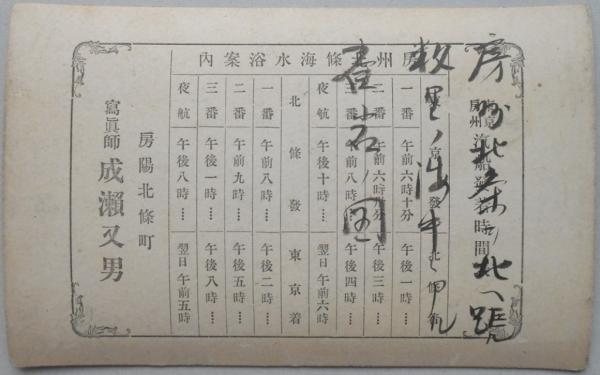 房州北條海水浴案内
東京
房州
汽船發着時間
東京發 北條着
一番 午前六時十分 午後一時……
二番 午前六時 分 午後三時……
三番 午前八時…… 午後四時……
夜航 午後十時…… 翌日午前六時
北條發 東京着
一番 午前八時…… 午後二時……
二番 午前九時…… 午後五時……
三番 午後一時…… 午後八時……
夜航 午後八時…… 翌日午前五時
房陽北條町
寫眞師 成瀬又男
房州北条ヨリ北ヘ距ル
数里ノ海中ニ
岩ノ図